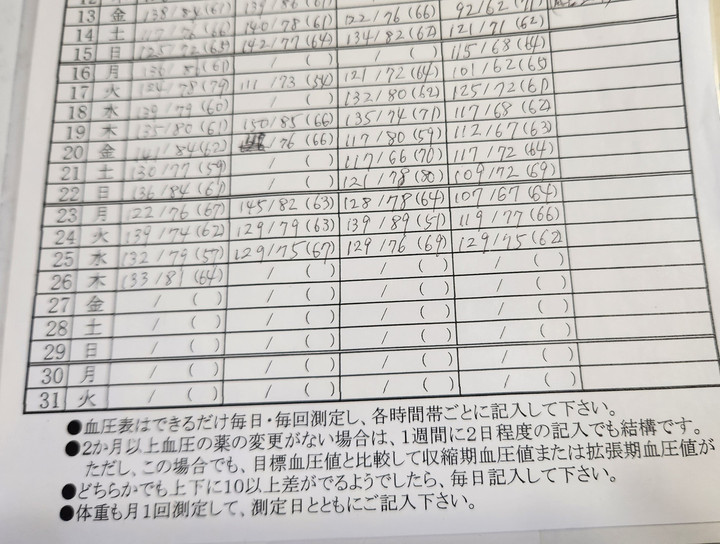 13 金 138/84(61) 139/86(61) 122/76(66) 92/62(71)
14 土 117/76(66) 140/78(61) 134/82(62) 121/71(62)
15 日 142/77(64) / ( ) 115/68(64)
16 月 136/86(61) / ( ) 121/72(64) 101/62(65)
17 火 /78(79) 111/73(54) 132/80(62) 125/72(61)
18 水 139/79(60) / ( ) 135/74(71) 117/68(62)
19 木 135/80(61) 150/85(66) 117/80(59) 112/67(63)
20 金 141/84(62) /76(66) 117/66(70) 117/72(64)
21 土 130/77(59) / ( ) 121/78(80) 109/72(69)
22 日 136/84(61) / ( ) 128/78(64) 107/67(64)
23 月 122/76(67) 145/82(63) 139/89(51) 119/77(66)
24 火 139/74(62) 129/79(63) 129/76(69) 129/75(62)
25 水 132/79(57) 129/75(67) / ( ) / ( )
26 木 133/81(64) / ( ) / ( ) / ( )
27 金 / ( ) / ( ) / ( ) / ( )
28 土 / ( ) / ( ) / ( ) / ( )
29 日 / ( ) / ( ) / ( ) / ( )
30 月 / ( ) / ( ) / ( ) / ( )
31 火 / ( ) / ( ) / ( ) / ( )
●血圧表はできるだけ毎日・毎回測定し、各時間帯ごとに記入して下さい。
●2か月以上血圧の薬の変更がない場合は、1週間に2日程度の記入でも結構です。
ただし、この場合でも、目標血圧値と比較して収縮期血圧値または拡張期血圧値が
●どちらかでも上下に10以上差がでるようでしたら、毎日記入して下さい。
●体重も月1回測定して、測定日とともにご記入下さい。